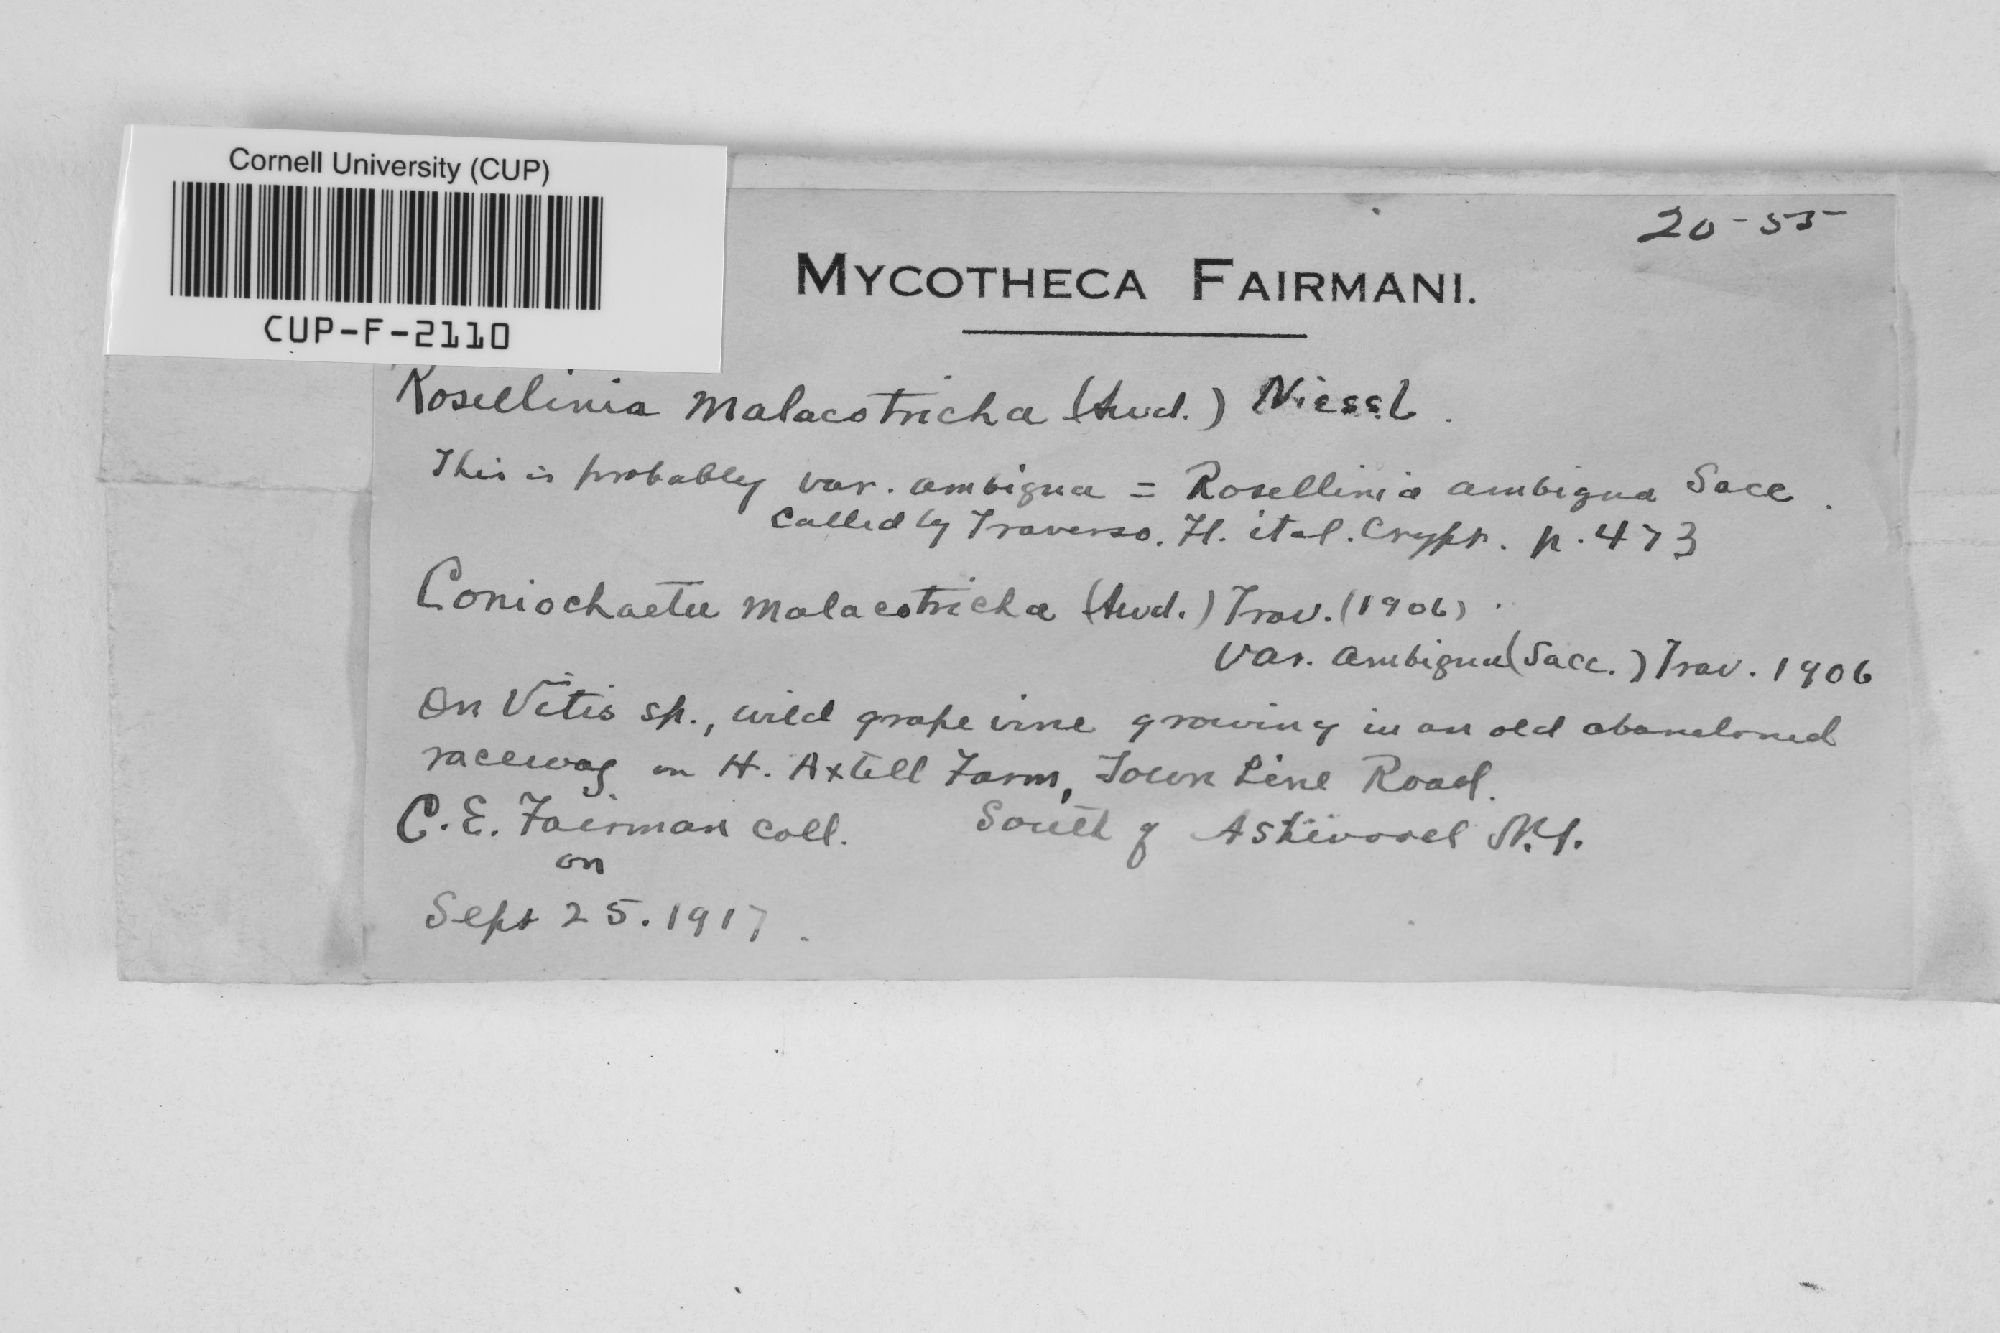 Cornell University (CUP)
CUP-F-2110
20-55
MYCOTHECA FAIRMANI.
Rosellinia malacotricha (Awd.) Niessl.
This is probably var. ambigua = Rosellinia ambigua Sacc.
called by Traverso. Fl. ital. Crypt. p. 473
Coniochaeta malacotricha (Awd.) Trav. (1906).
Var. ambigua (Sacc.) Trav. 1906
On Vitis sp., wild grape vine growing in an old abandoned
raceway on H. Axtell Farm, Town Line Road.
C. E. Fairman coll. South of Ashwood N.Y.
on
Sept 25. 1917.